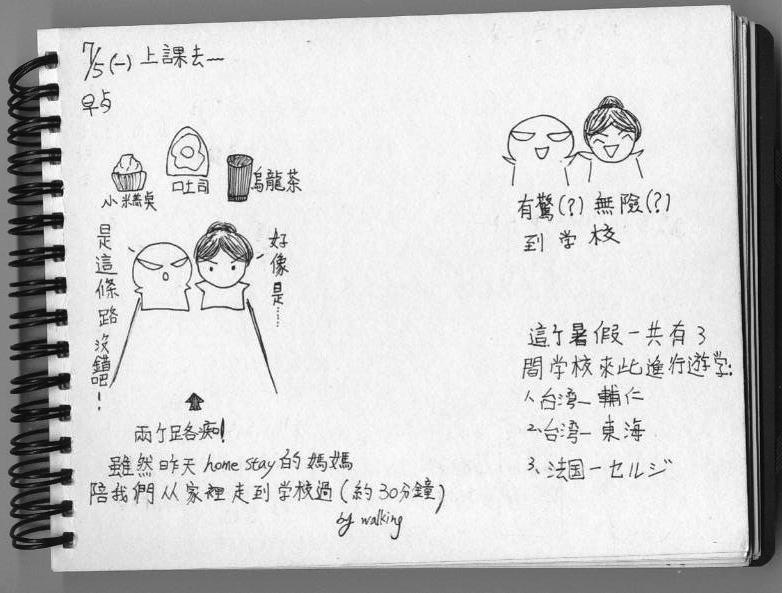 7/5(一) 上課去~
早点
小米糕
吐司
烏龍茶
是這條路沒錯吧!
好像是……
兩个路痴!
雖然昨天 home stay 的媽媽
陪我們从家裡走到学校過(約30分鐘)
by walking
有驚(?)無險(?)
到学校
這个暑假一共有3
間学校來此進行遊学:
1.台湾—輔仁
2.台湾—東海
3.法国—セルジ